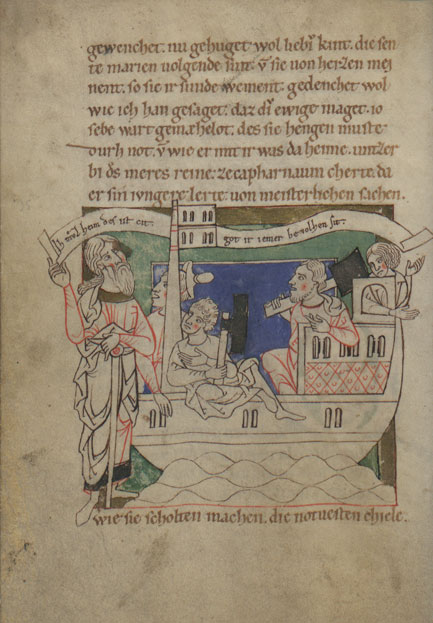 gewenchet. nu gehuget wol liebiu kint. die sen
te marien volgende sint. vñ sie von herzen mei
nent. so sie ir sunde wement. gedenchet wol
wie ich han gesaget. daz diu ewige maget. io
sebe wart gemæhelot. des sie hengen muste
durh not. vñ wie er mit ir was da heime. untzer
bi des meres reine. ze capharnaum cherte. da
er sin iungere lerte. von meisterlichen sachen.
ih wol heim des ist cit.
got ir iemer bevolhen sit.
wie sie scholten machen. die notvesten chiele.